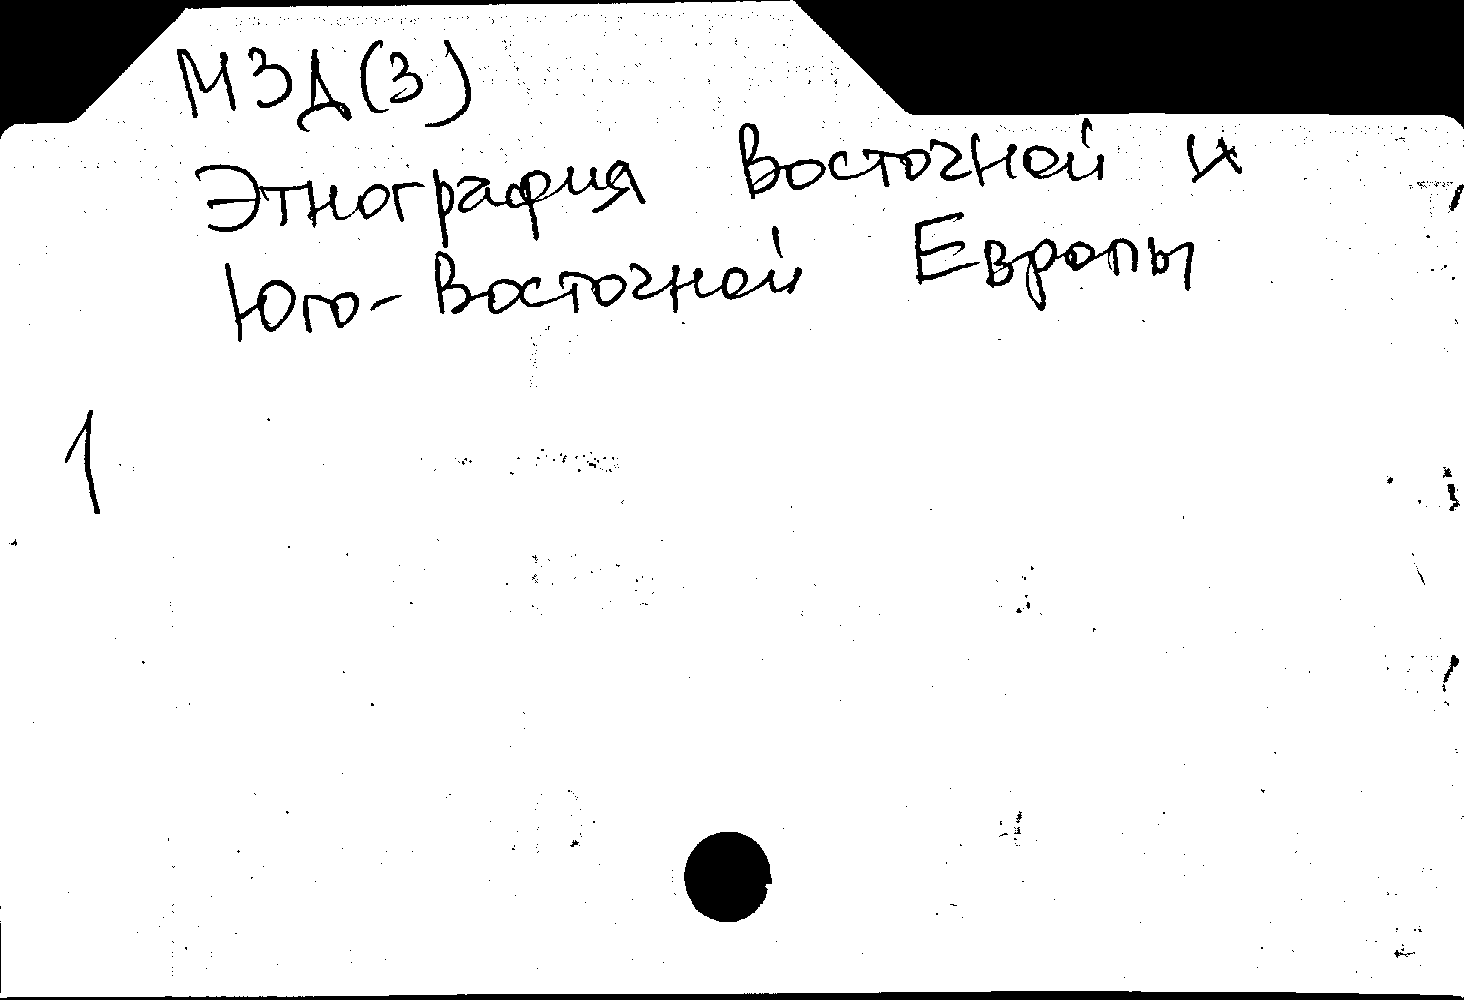 МЗД(3)
Этнография Восточной и
Юго-Восточной Европы
1